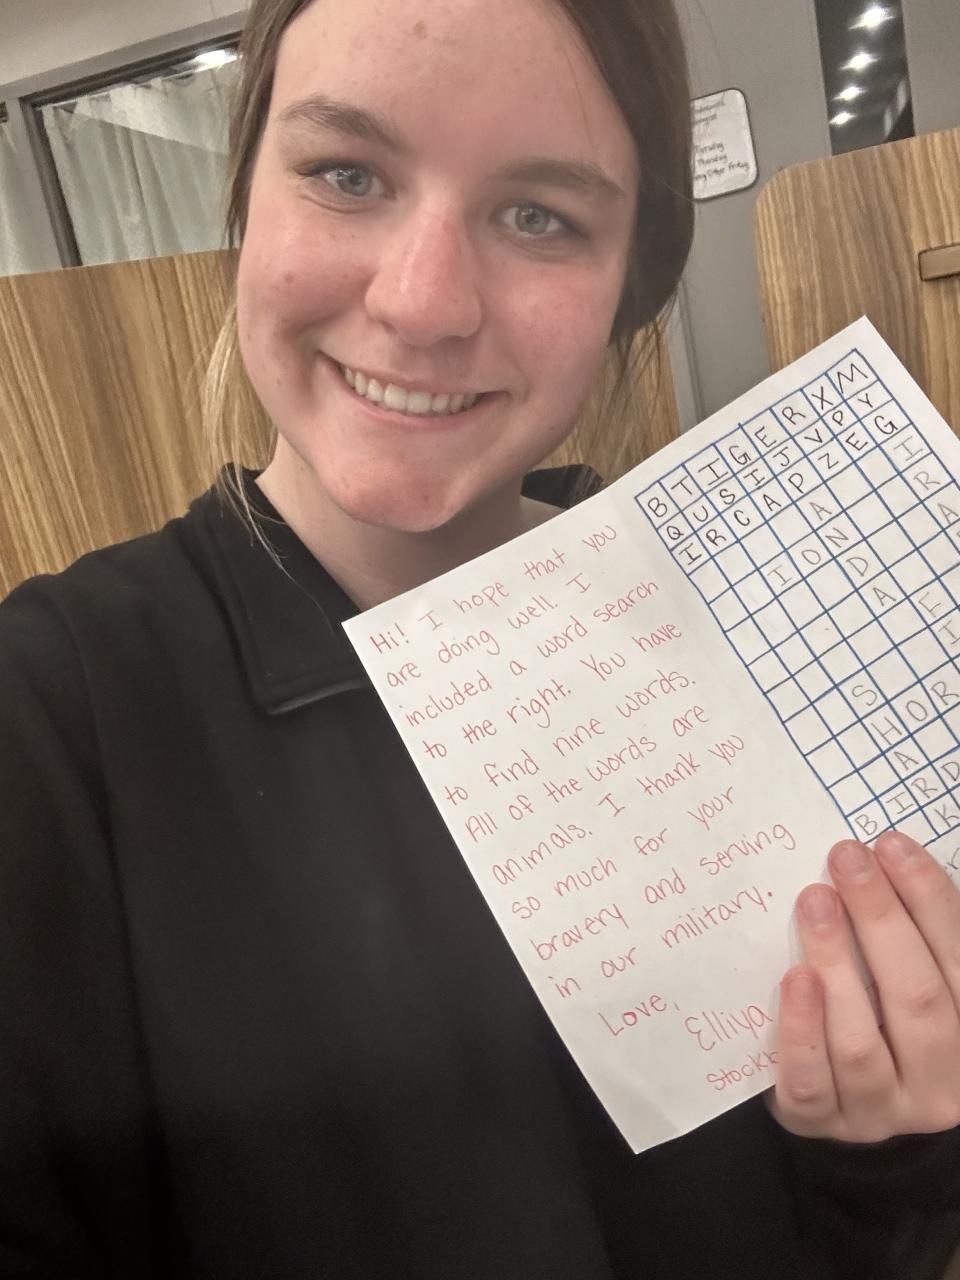 Tursday
Thursday
Every Other Friday
Hi! I hope that you
are doing well. I
included a word search
to the right. You have
to find nine words.
All of the words are
animals. I thank you
so much for your
bravery and serving
in our military.
Love,
Elliya
B T I G E R X M
Q U S I J V P Y
I R C A P Z E G
I
A R
I O N
D A
A E
I
S
H O R
A
B I R D
K